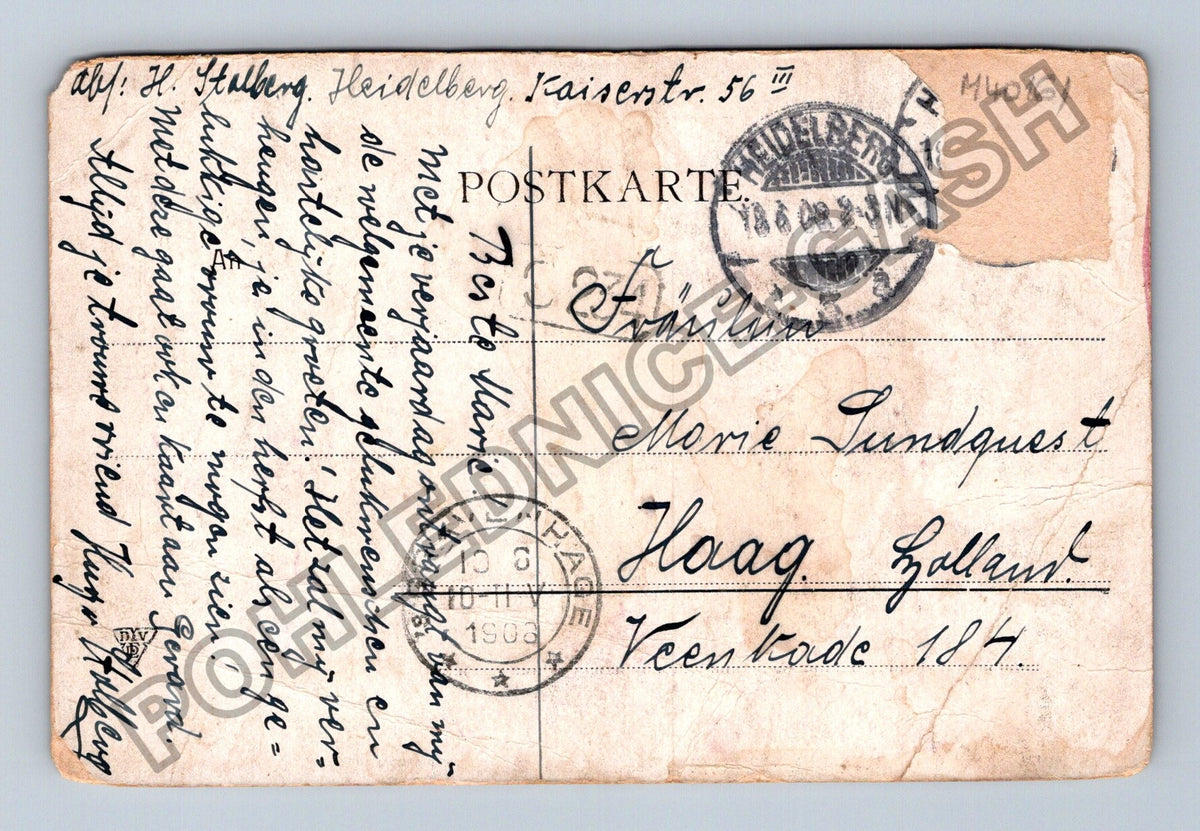 abs: H. Stalberg. Heidelberg. Kaiserstr. 56 III
M40
POSTKARTE.
HEIDELBERG
18 6 08 2-3 N
* 5 a
An
Fräulein
Marie Lundquest
Haag. Holland.
Veenkade 184.
Beste Marie!
Met je verjaardag ontvangt van my
de welgemeente gelukwenschen en
hartelyke groeten. Het zal my ver=
heugen, je in den herfst als een ge=
lukkige vrouw te mogen zien.
Met deze gaat ook en kaart aan Gerard.
Altijd je trouwe vriend Hugo Stalberg
HAGE
19 6
10-11 V
1908
POHLEDNICE-GASH